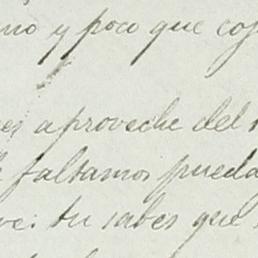 no y poco que cog
aproveche del
faltamos pueda
ve: tu sabes que